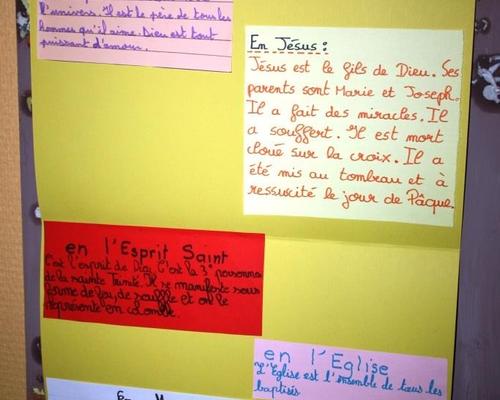 l'univers. Il est le père de tous les
hommes qu'il aime. Dieu est tout
puissant d'amour.
En Jésus :
Jésus est le fils de Dieu. Ses
parents sont Marie et Joseph.
Il a fait des miracles. Il
a souffert. Il est mort
cloué sur la croix. Il a
été mis au tombeau et à
ressuscité le jour de Pâque.
en l'Esprit Saint
C'est l'esprit de Dieu. C'est la 3e personne
de la sainte Trinité. Il se manifeste sous
forme de feu, de souffle et on le
représente en colombe.
en l'Eglise
L'Eglise est l'ensemble de tous les
baptisés